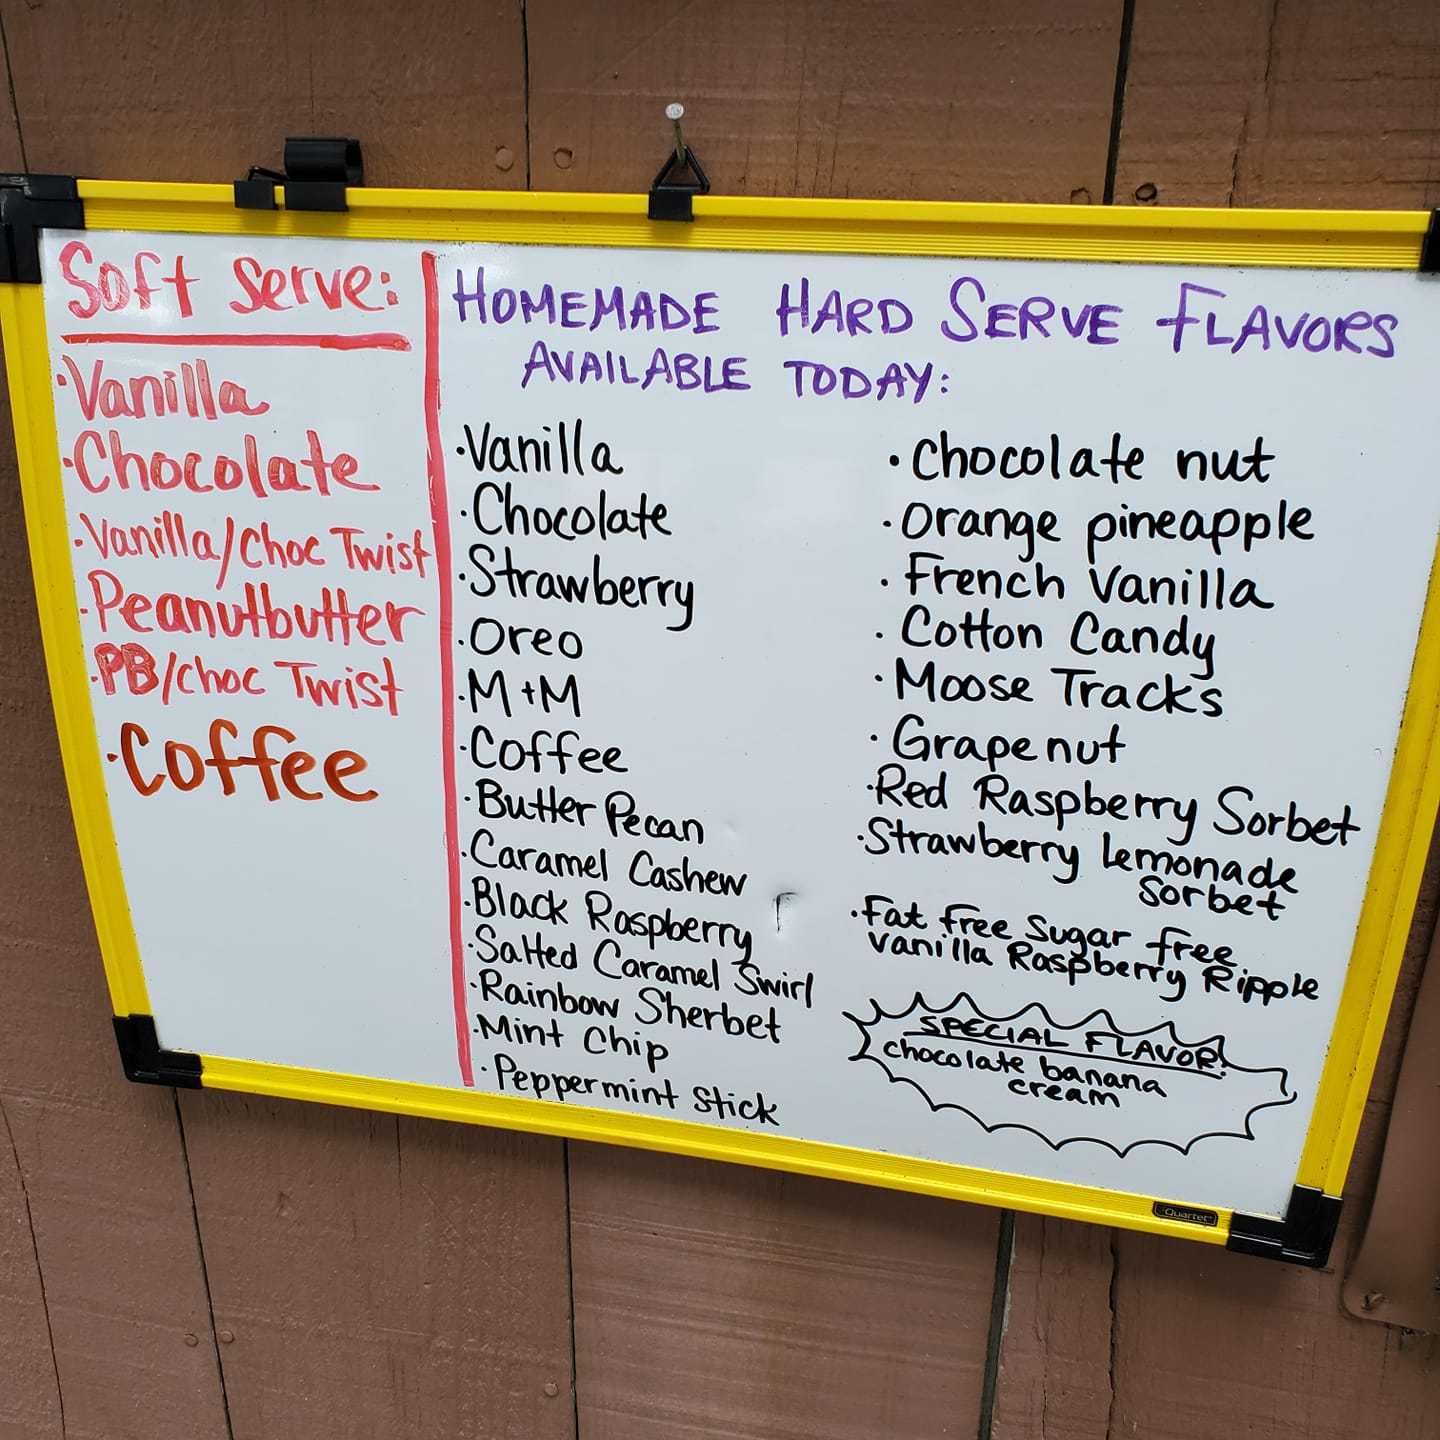 Soft Serve:
·Vanilla
·Chocolate
·Vanilla/Choc Twist
·Peanutbutter
·PB/Choc Twist
·Coffee
HOMEMADE HARD SERVE FLAVORS
AVAILABLE TODAY:
·Vanilla
·Chocolate
·Strawberry
·Oreo
·M+M
·Coffee
·Butter Pecan
·Caramel Cashew
·Black Raspberry
·Salted Caramel Swirl
·Rainbow Sherbet
·Mint Chip
·Peppermint Stick
·Chocolate nut
·Orange pineapple
·French Vanilla
·Cotton Candy
·Moose Tracks
·Grapenut
·Red Raspberry Sorbet
·Strawberry Lemonade
Sorbet
·Fat free Sugar free
Vanilla Raspberry Ripple
SPECIAL FLAVOR!
chocolate banana
cream
Quartet